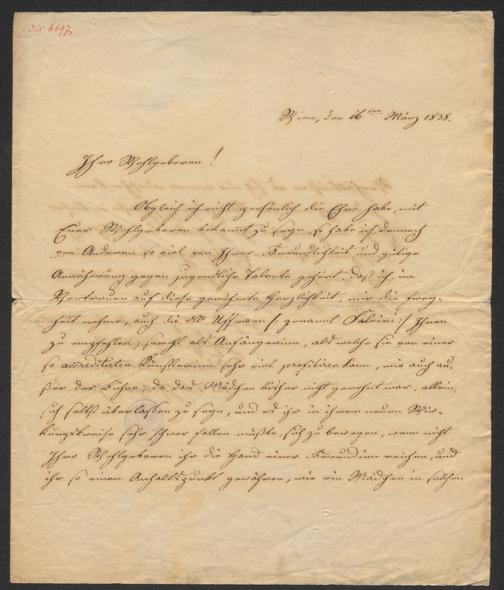 I.N. 6697
Wien, den 16ten März 1838.
Ihro Wohlgeboren!
Obgleich ich nicht persönlich die Ehre habe, mit
Euer Wohlgeboren bekannt zu seyn, so habe ich dennoch
von Anderen so viel von Ihrer Freundlichkeit und gütige
Annäherung gegen jugendliche Talente gehört, daß ich, im
Vertrauen auf diese gerühmte Herzlichkeit, mir die Frey-
heit nehme, auch die Dlle Uffmann /: genannt Salvini :/ Ihnen
zu empfehlen; sowohl als Anfängerinn, als welche sie von einer
so accreditirten Künstlerinn sehr viel profitiren kann, wie auch au-
ßer der Bühne; da das Mädchen bisher nicht gewohnt war, allein,
sich selbst überlassen zu seyn, und es ihr in ihrem neuen Wir-
kungskreise sehr schwer fallen müßte, sich zu bewegen, wenn nicht
Ihro Wohlgeboren ihr die Hand einer Freundinn reichen, und
ihr so einen Anhaltspunkt gewähren, wie ein Mädchen in solchen